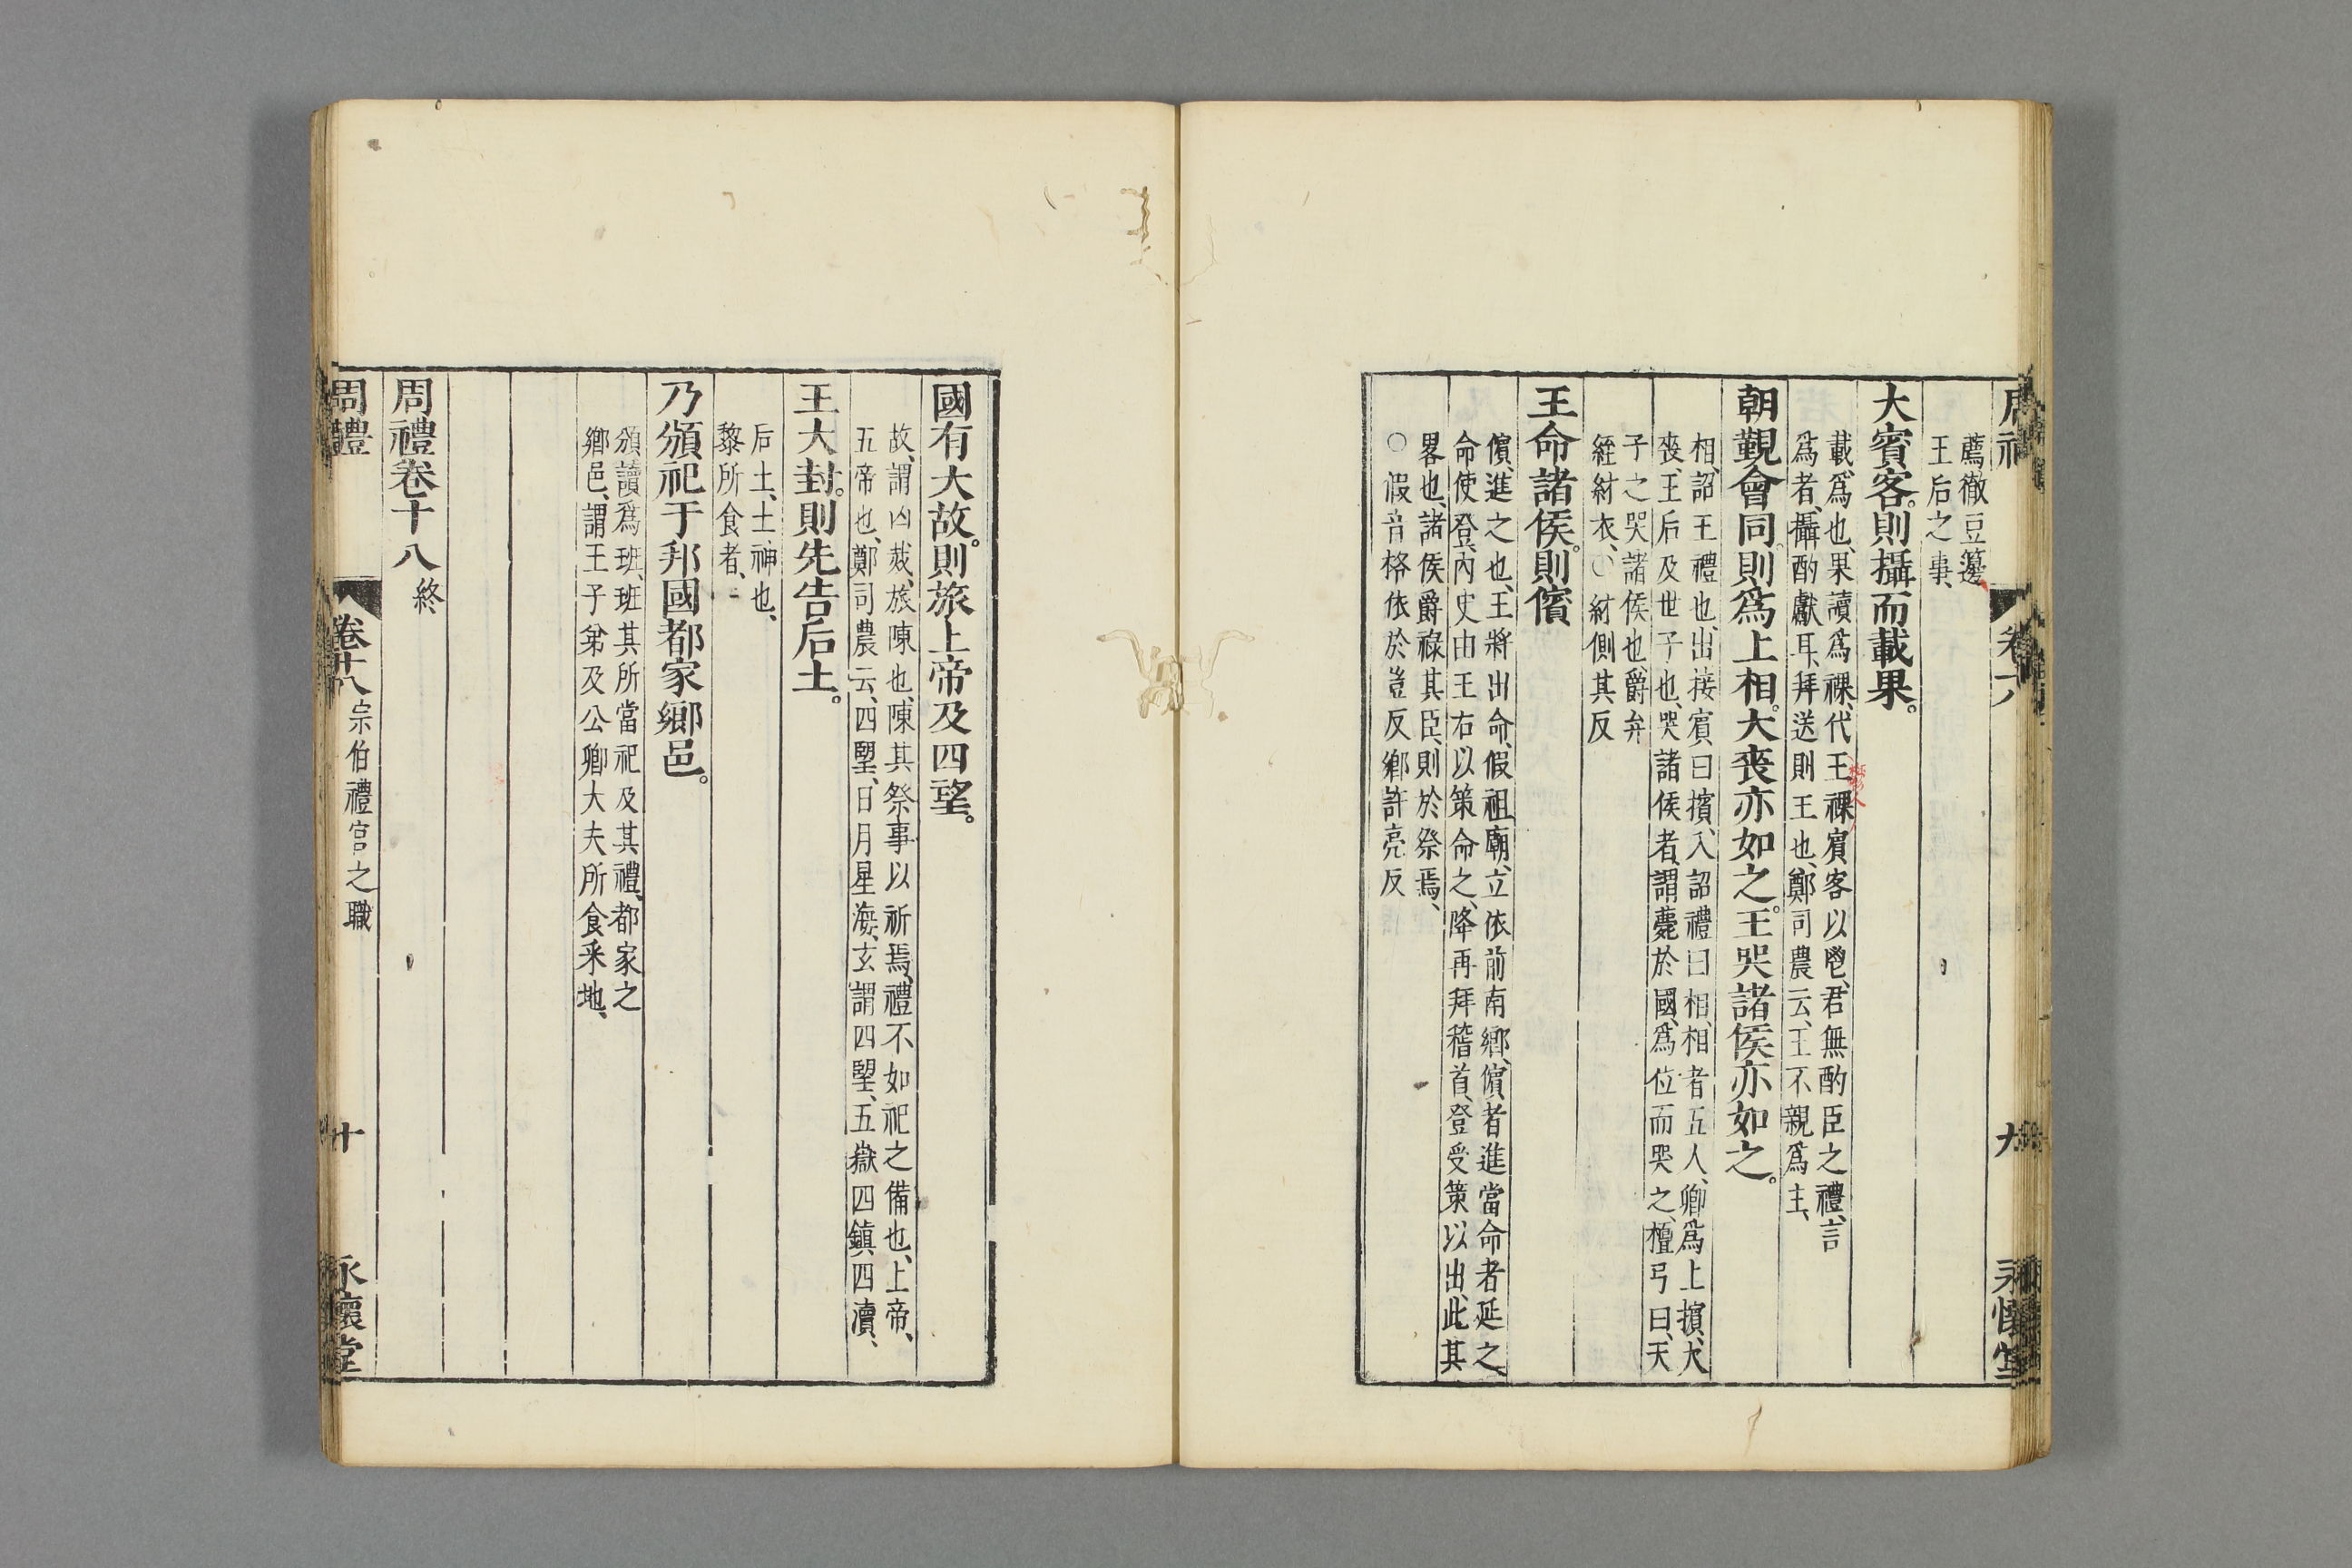 薦徹豆籩
王后之事、
大賓客。則攝而載果。
載、爲也、果讀爲祼、代王祼賓客以鬯、君無酌臣之禮、言
爲者、攝酌獻耳、拜送則王也、鄭司農云、王不親爲主、
朝覲會同。則爲上相。大喪亦如之。王哭諸侯亦如之。
相、詔王禮也、出接賓曰擯、入詔禮曰相、相者五人、卿爲上擯、大
喪、王后及世子也、哭諸侯者、謂薨於國、爲位而哭之、檀弓曰、天
子之哭諸侯也、爵弁
絰紂衣、〇紂側其反
王命諸侯。則儐
儐、進之也、王將出命、假祖廟、立依前南鄉、儐者進當命者延之、
命使登、內史由王右以策命之、降再拜稽首、登受策以出、此其
畧也、諸侯爵祿其臣、則於祭焉、
〇假音格依於豈反鄉許亮反
卷十八
九
永懷堂
國有大故。則旅上帝及四望。
故、謂凶烖、旅陳也、陳其祭事以祈焉、禮不如祀之備也、上帝、
五帝也、鄭司農云、四朢、日月星海、玄謂四朢、五嶽四鎮四瀆、
王大封。則先告后土。
后土、土神也、
黎所食者、
乃頒祀于邦國都家鄉邑。
頒讀爲班、班其所當祀及其禮、都家之
鄉邑、謂王子弟及公卿大夫所食采地、
周禮卷十八終
周禮
卷十八
宗伯禮官之職
十
永懷堂